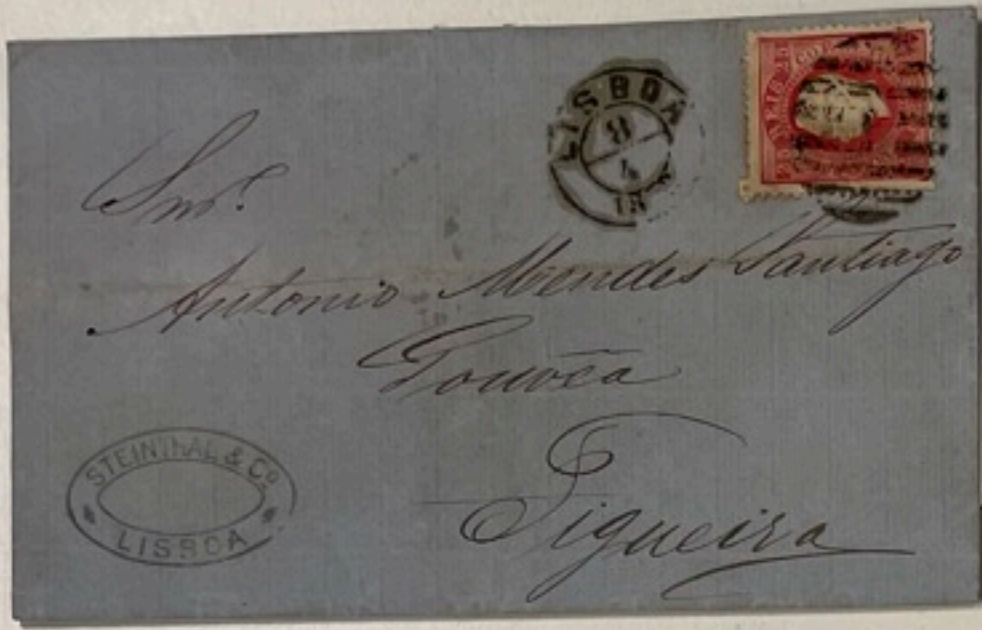 LISBOA
Snr.
Antonio Mendes Santiago
Figueira
STEINTHAL & Co
LISBOA